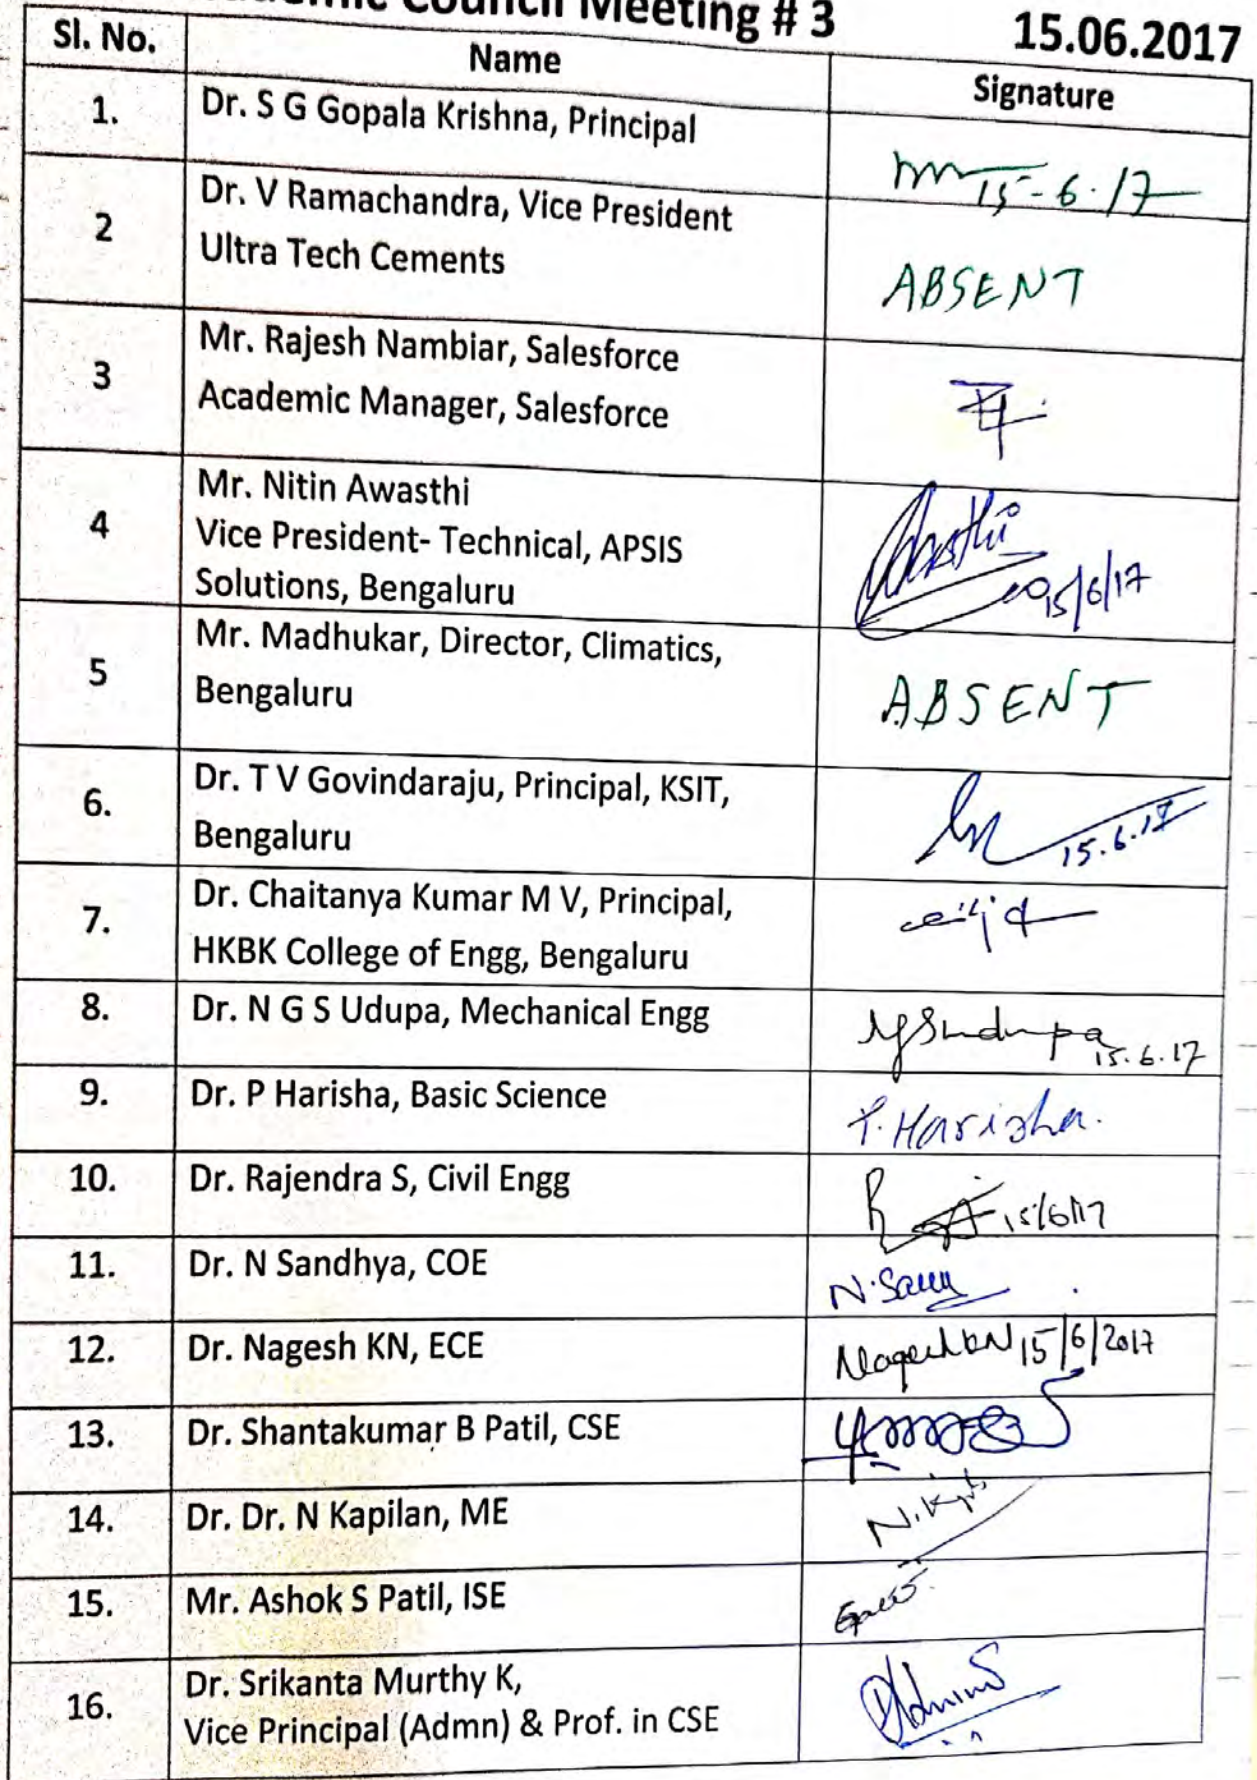 Council Meeting # 3 15.06.2017
Sl. No. Name Signature
1. Dr. S G Gopala Krishna, Principal 15-6-17
2 Dr. V Ramachandra, Vice President
Ultra Tech Cements ABSENT
3 Mr. Rajesh Nambiar, Salesforce
Academic Manager, Salesforce
4 Mr. Nitin Awasthi
Vice President- Technical, APSIS
Solutions, Bengaluru 15/6/17
5 Mr. Madhukar, Director, Climatics,
Bengaluru ABSENT
6. Dr. T V Govindaraju, Principal, KSIT,
Bengaluru 15.6.17
7. Dr. Chaitanya Kumar M V, Principal,
HKBK College of Engg, Bengaluru
8. Dr. N G S Udupa, Mechanical Engg 15.6.17
9. Dr. P Harisha, Basic Science P. Harisha.
10. Dr. Rajendra S, Civil Engg 15/6/17
11. Dr. N Sandhya, COE
12. Dr. Nagesh KN, ECE Nagesh KN 15/6/2017
13. Dr. Shantakumar B Patil, CSE
14. Dr. Dr. N Kapilan, ME
15. Mr. Ashok S Patil, ISE
16. Dr. Srikanta Murthy K,
Vice Principal (Admn) & Prof. in CSE